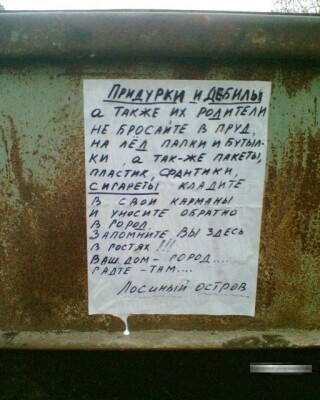 ПРИДУРКИ И ДЕБИЛЫ
а ТАКЖЕ ИХ РОДИТЕЛИ
НЕ БРОСАЙТЕ В ПРУД,
НА ЛЁД ПАПКИ И БУТЫЛ-
КИ, а ТАК-ЖЕ ПАКЕТЫ,
ПЛАСТИК, ФАНТИКИ,
СИГАРЕТЫ КЛАДИТЕ
В СВОИ КАРМАНЫ
И УНОСИТЕ ОБРАТНО
В ГОРОД.
ЗАПОМНИТЕ ВЫ ЗДЕСЬ
В ГОСТЯХ !!!
ВАШ ДОМ - ГОРОД....
ГАДТЕ - ТАМ....
ЛОСИНЫЙ ОСТРОВ